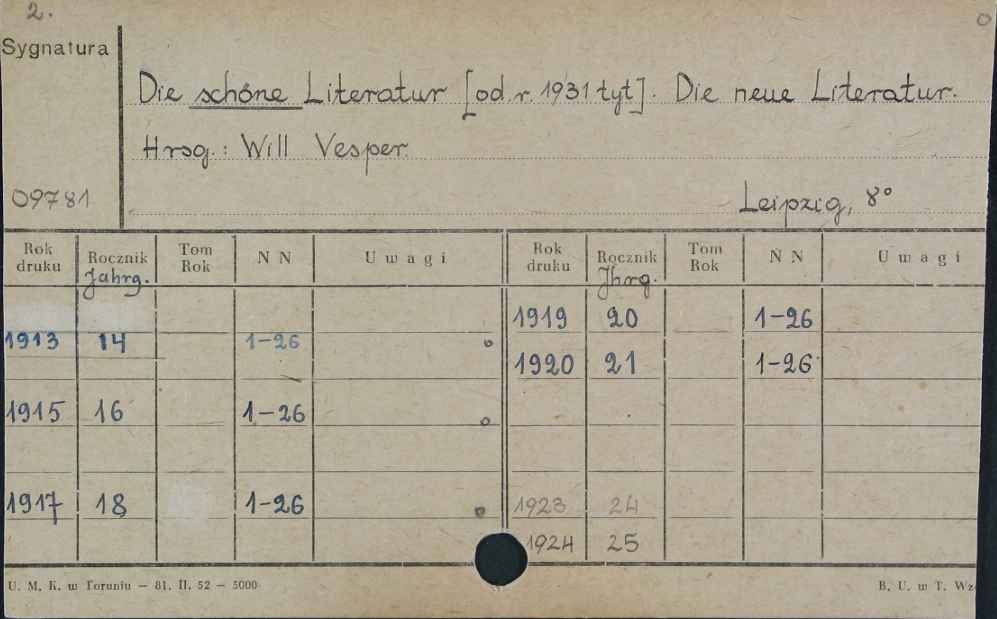 2.
Sygnatura
Die schöne Literatur [od r. 1931 tyt]. Die neue Literatur.
Hrsg.: Will Vesper.
09781
Leipzig, 8°
Rok druku Rocznik Jahrg. Tom Rok N N Uwagi Rok druku Rocznik Jhrg. Tom Rok N N Uwagi
1919 20 1-26
1913 14 1-26
1920 21 1-26
1915 16 1-26
1917 18 1-26 1923 24
1924 25
U. M. K. w Toruniu — 81. II. 52 — 5000 B. U. w T.